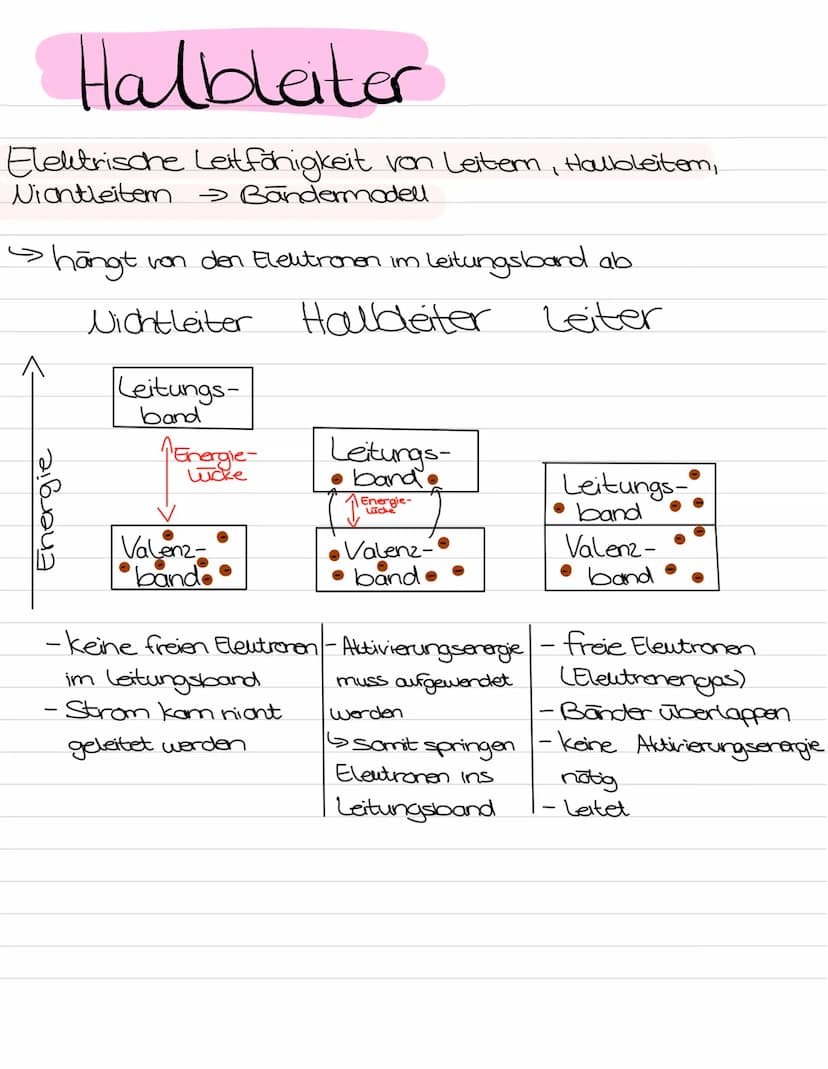 Halbleiter
Elektrische Leitfähigkeit von Leitern, Halbleitern,
Nichtleitern → Bändermodell
↳ hängt von den Elektronen im Leitungsband ab
Nichtleiter Halbleiter Leiter
Energie
Leitungs-
band
Energie-
lücke
Valenz-
band
Leitungs-
band
Energie-
lücke
Valenz-
band
Leitungs-
band
Valenz-
band
- keine freien Elektronen
im Leitungsband
- Strom kann nicht
geleitet werden
- Aktivierungsenergie
muss aufgewendet
werden
↳ somit springen
Elektronen ins
Leitungsband
- freie Elektronen
(Elektronengas)
- Bänder überlappen
- keine Aktivierungsenergie
nötig
- leitet